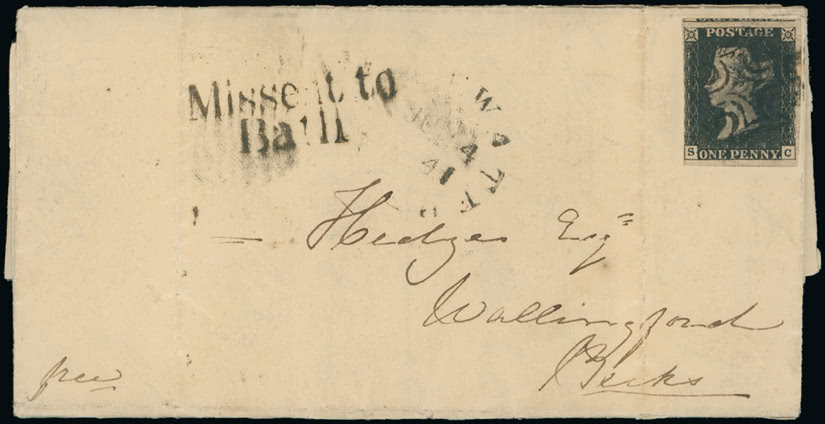 POSTAGE
S ONE PENNY C
Missent to
Bath
4
41
Hedges Esqr
Wallingford
Berks
free